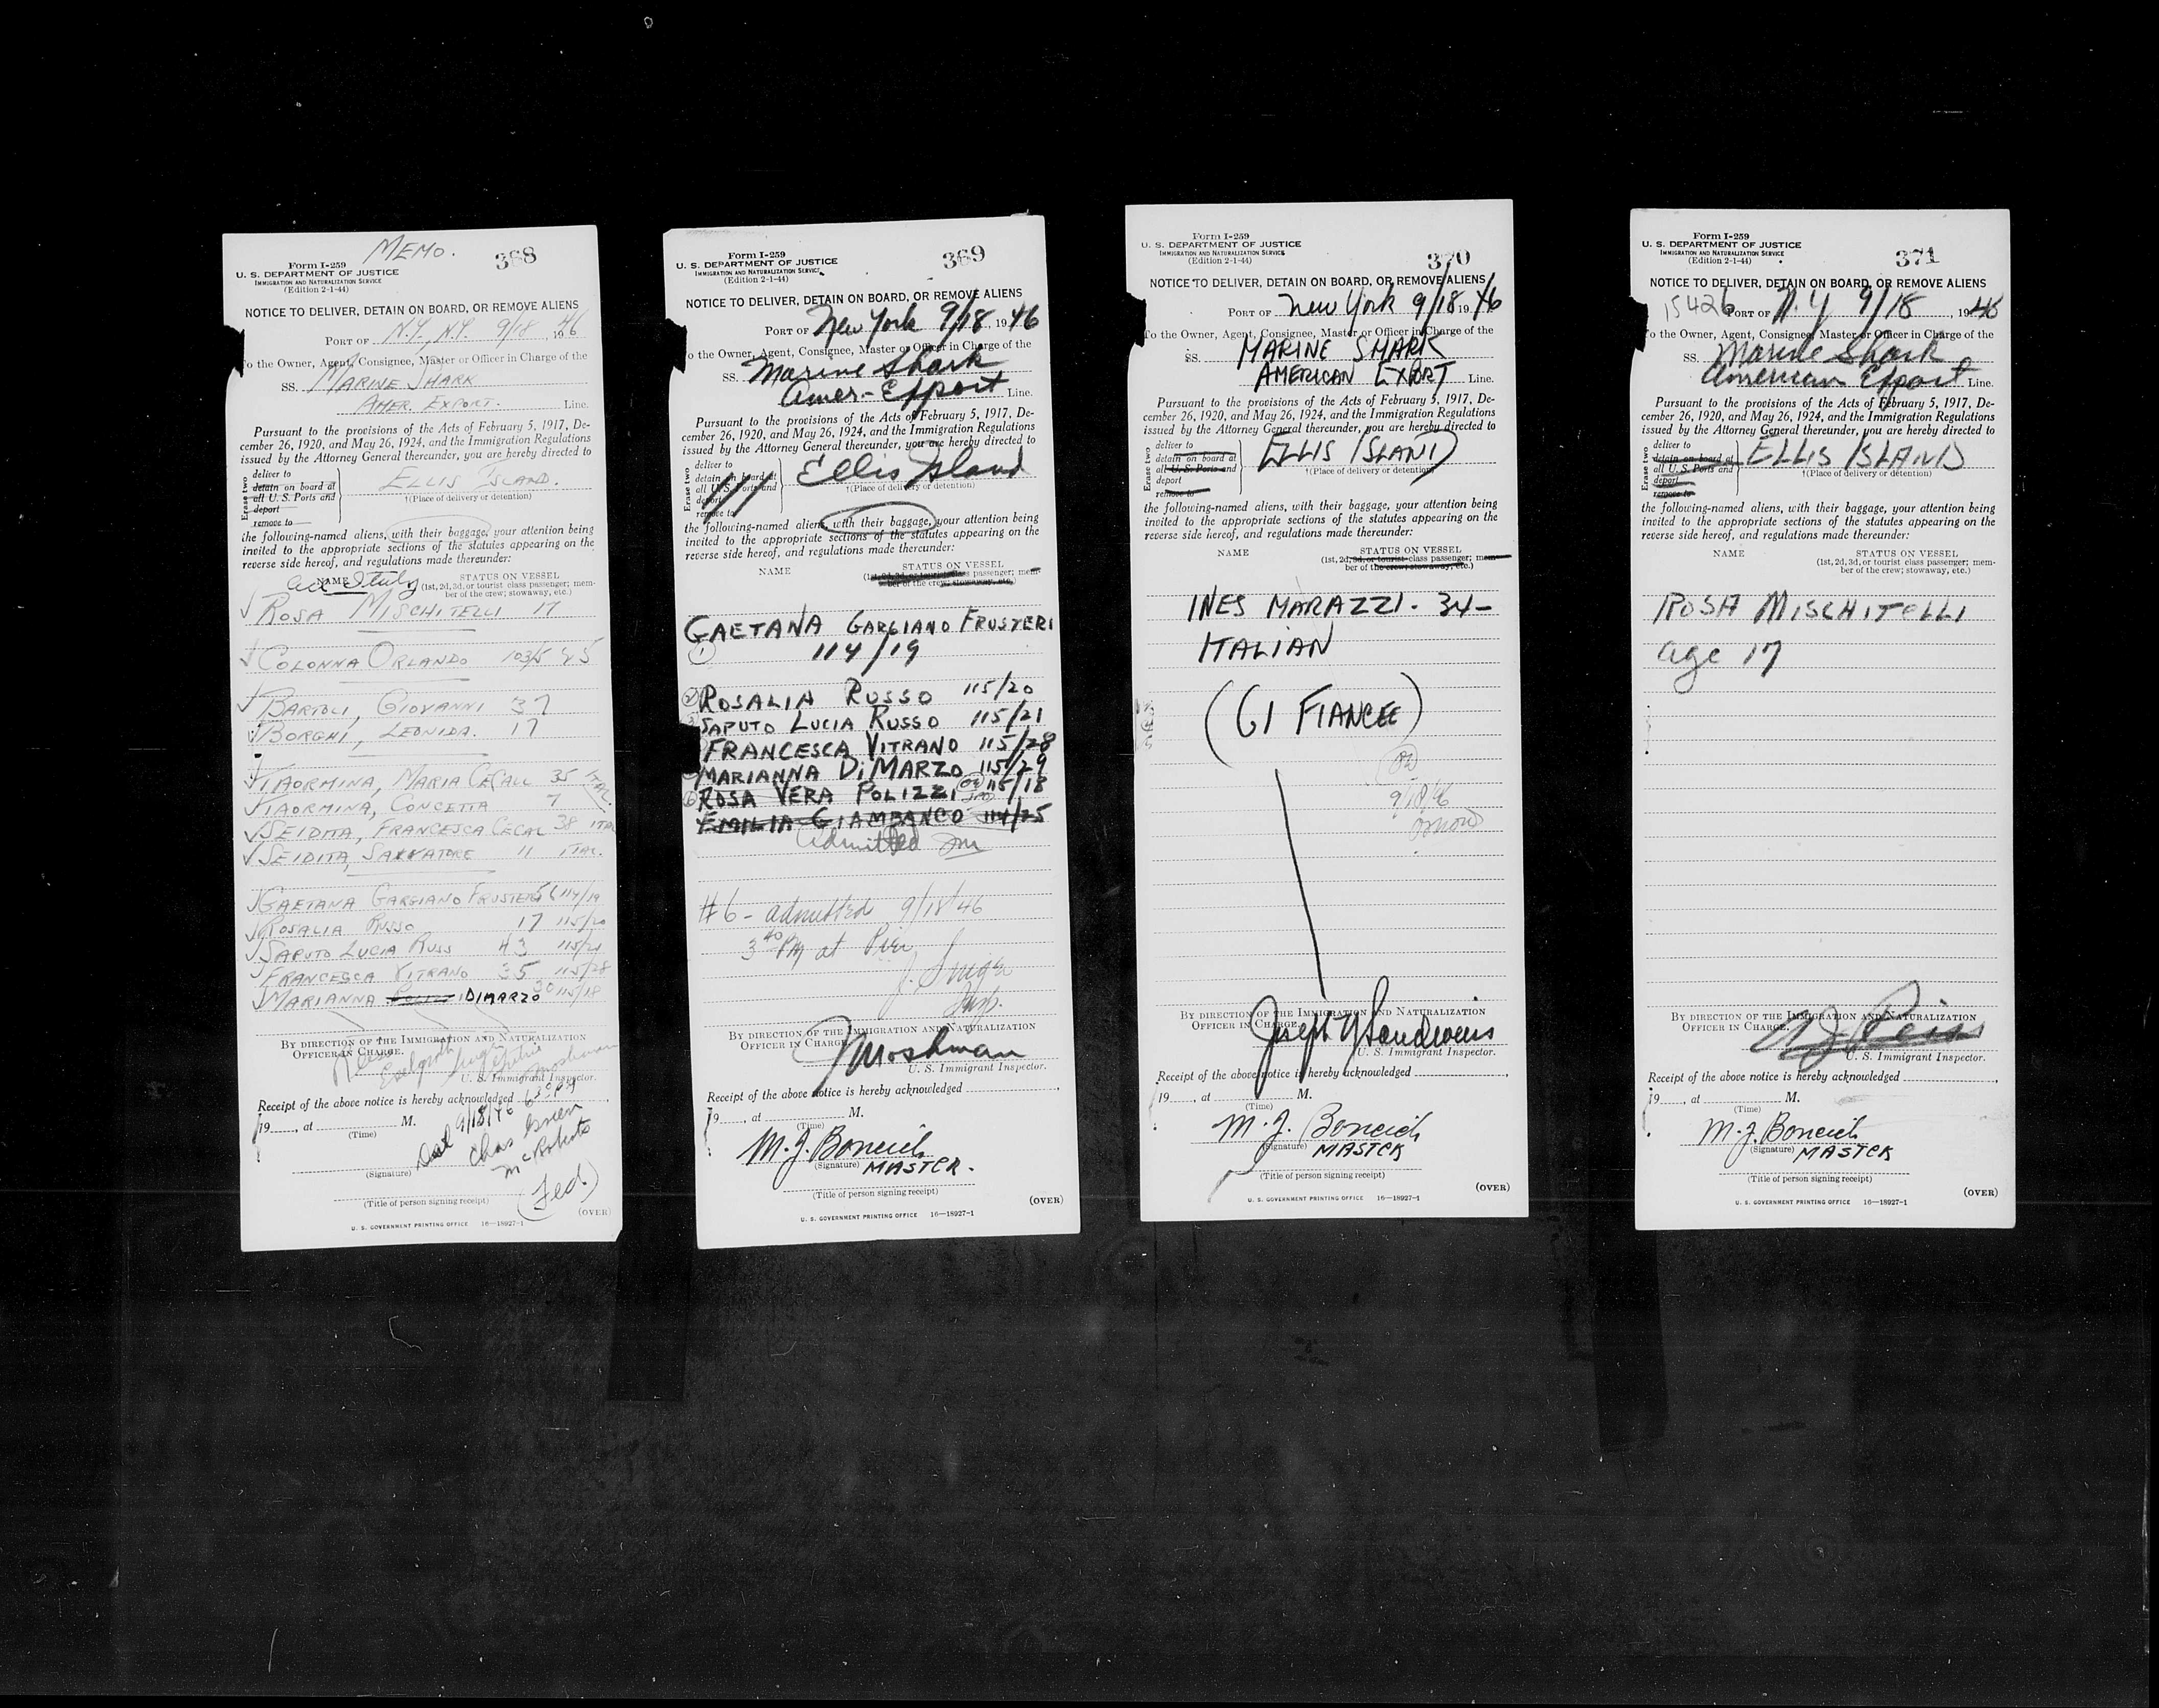 MEMO.
388
Form I-259
U. S. DEPARTMENT OF JUSTICE
IMMIGRATION AND NATURALIZATION SERVICE
(Edition 2-1-44)
NOTICE TO DELIVER, DETAIN ON BOARD, OR REMOVE ALIENS
PORT OF N.Y., N.Y. 9/18, 1946
To the Owner, Agent, Consignee, Master or Officer in Charge of the
SS. MARINE SHARK
AMER. EXPORT. Line.
Pursuant to the provisions of the Acts of February 5, 1917, De-
cember 26, 1920, and May 26, 1924, and the Immigration Regulations
issued by the Attorney General thereunder, you are hereby directed to
Erase two
deliver to
detain on board at
all U. S. Ports and
deport
remove to
ELLIS ISLAND.
†(Place of delivery or detention)
the following-named aliens, with their baggage, your attention being
invited to the appropriate sections of the statutes appearing on the
reverse side hereof, and regulations made thereunder:
NAME Italy STATUS ON VESSEL
(1st, 2d, 3d, or tourist class passenger; mem-
ber of the crew; stowaway, etc.)
ROSA MISCHITELLI 17
COLONNA ORLANDO 103/5 45
BARTOLI, GIOVANNI 37
BORGHI, LEONIDA. 17
TAORMINA, MARIA CECALL 35 ITAL.
TAORMINA, CONCETTA 7
SEIDITA, FRANCESCA CECAL 38 ITAL
SEIDITA, SALVATORE 11 ITAL.
GAETANA GARGIANO FRUSTERI 56 114/19
ROSALIA RUSSO 17 115/20
SAPUTO LUCIA RUSS 43 115/21
FRANCESCA VITRANO 35 115/28
MARIANNA DIMARZO 30 115/18
BY DIRECTION OF THE IMMIGRATION AND NATURALIZATION
OFFICER IN CHARGE.
Moshman
U. S. Immigrant Inspector.
Receipt of the above notice is hereby acknowledged
19____, at ____ M.
(Time)
9/18/46
Chas Green
McRoberts
(Signature)
(Fed.)
(Title of person signing receipt)
(OVER)
U. S. GOVERNMENT PRINTING OFFICE 16—18927-1
369
Form I-259
U. S. DEPARTMENT OF JUSTICE
IMMIGRATION AND NATURALIZATION SERVICE
(Edition 2-1-44)
NOTICE TO DELIVER, DETAIN ON BOARD, OR REMOVE ALIENS
PORT OF New York 9/18, 1946
o the Owner, Agent, Consignee, Master or Officer in Charge of the
SS. Marine Shark
Amer-Export Line.
Pursuant to the provisions of the Acts of February 5, 1917, De-
cember 26, 1920, and May 26, 1924, and the Immigration Regulations
issued by the Attorney General thereunder, you are hereby directed to
Erase two
deliver to
detain on board at
all U. S. Ports and
deport
remove to
Ellis Island
†(Place of delivery or detention)
the following-named aliens, with their baggage, your attention being
invited to the appropriate sections of the statutes appearing on the
reverse side hereof, and regulations made thereunder:
NAME STATUS ON VESSEL
(1st, 2d, 3d, or tourist class passenger; mem-
ber of the crew; stowaway, etc.)
GAETANA GARGIANO FRUSTERI
1 114/19
2 ROSALIA RUSSO 115/20
3 SAPUTO LUCIA RUSSO 115/21
FRANCESCA VITRANO 115/28
MARIANNA DIMARZO 115/29
6 ROSA VERA POLIZZI 115/18
EMILIA GIAMBANCO 114/25
Admitted JM
#6 - admitted 9/18/46
3 40 PM at Pier
J. Singer
Insp.
BY DIRECTION OF THE IMMIGRATION AND NATURALIZATION
OFFICER IN CHARGE.
J Moshman
U. S. Immigrant Inspector.
Receipt of the above notice is hereby acknowledged
19____, at ____ M.
(Time)
M. J. Boncich
(Signature) MASTER.
(Title of person signing receipt)
(OVER)
U. S. GOVERNMENT PRINTING OFFICE 16—18927-1
370
Form I-259
U. S. DEPARTMENT OF JUSTICE
IMMIGRATION AND NATURALIZATION SERVICE
(Edition 2-1-44)
NOTICE TO DELIVER, DETAIN ON BOARD, OR REMOVE ALIENS
PORT OF New York 9/18 1946
To the Owner, Agent, Consignee, Master or Officer in Charge of the
SS. MARINE SHARK
AMERICAN EXPORT Line.
Pursuant to the provisions of the Acts of February 5, 1917, De-
cember 26, 1920, and May 26, 1924, and the Immigration Regulations
issued by the Attorney General thereunder, you are hereby directed to
Erase two
deliver to
detain on board at
all U. S. Ports and
deport
remove to
ELLIS ISLAND
†(Place of delivery or detention)
the following-named aliens, with their baggage, your attention being
invited to the appropriate sections of the statutes appearing on the
reverse side hereof, and regulations made thereunder:
NAME STATUS ON VESSEL
(1st, 2d, 3d, or tourist class passenger; mem-
ber of the crew; stowaway, etc.)
INES MARAZZI. 34-
ITALIAN
(GI FIANCEE)
9/18/46
BY DIRECTION OF THE IMMIGRATION AND NATURALIZATION
OFFICER IN CHARGE.
Joseph
U. S. Immigrant Inspector.
Receipt of the above notice is hereby acknowledged
19____, at ____ M.
(Time)
M. J. Boncich
(Signature) MASTER
(Title of person signing receipt)
(OVER)
U. S. GOVERNMENT PRINTING OFFICE 16—18927-1
371
Form I-259
U. S. DEPARTMENT OF JUSTICE
IMMIGRATION AND NATURALIZATION SERVICE
(Edition 2-1-44)
NOTICE TO DELIVER, DETAIN ON BOARD, OR REMOVE ALIENS
15426 PORT OF N.Y 9/18, 1946
o the Owner, Agent, Consignee, Master or Officer in Charge of the
SS. Marine Shark
American Export Line.
Pursuant to the provisions of the Acts of February 5, 1917, De-
cember 26, 1920, and May 26, 1924, and the Immigration Regulations
issued by the Attorney General thereunder, you are hereby directed to
Erase two
deliver to
detain on board at
all U. S. Ports and
deport
remove to
ELLIS ISLAND
†(Place of delivery or detention)
the following-named aliens, with their baggage, your attention being
invited to the appropriate sections of the statutes appearing on the
reverse side hereof, and regulations made thereunder:
NAME STATUS ON VESSEL
(1st, 2d, 3d, or tourist class passenger; mem-
ber of the crew; stowaway, etc.)
ROSA MISCHITELLI
age 17
BY DIRECTION OF THE IMMIGRATION AND NATURALIZATION
OFFICER IN CHARGE.
U. S. Immigrant Inspector.
Receipt of the above notice is hereby acknowledged
19____, at ____ M.
(Time)
M. J. Boncich
(Signature) MASTER
(Title of person signing receipt)
(OVER)
U. S. GOVERNMENT PRINTING OFFICE 16—18927-1